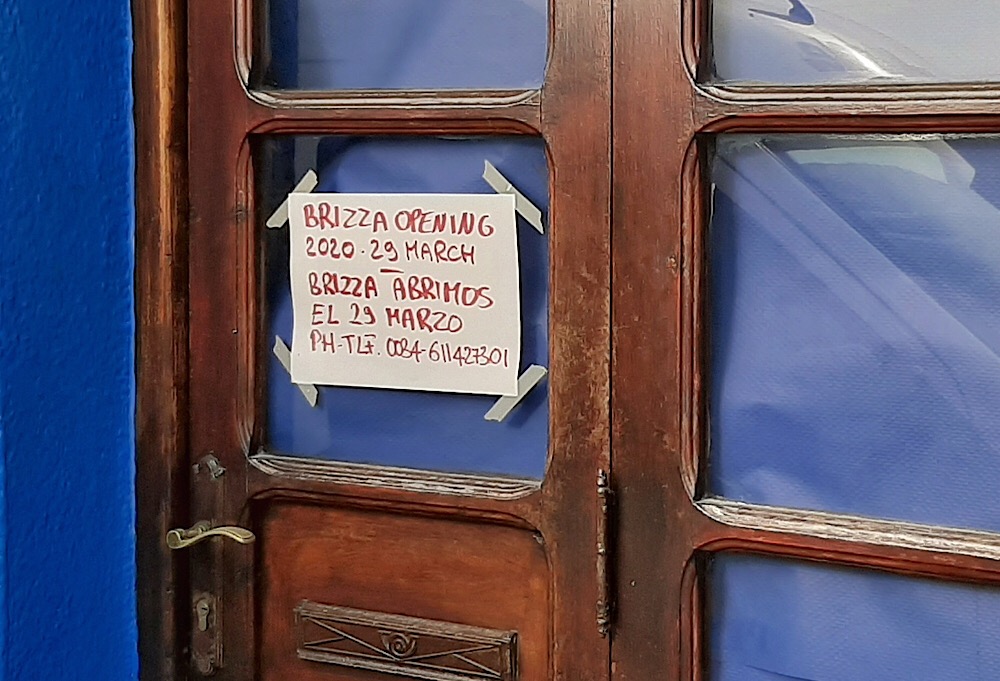 BRIZZA OPENING
2020 · 29 MARCH
BRIZZA ABRIMOS
EL 29 MARZO
PH-TLF. 0034-611427301